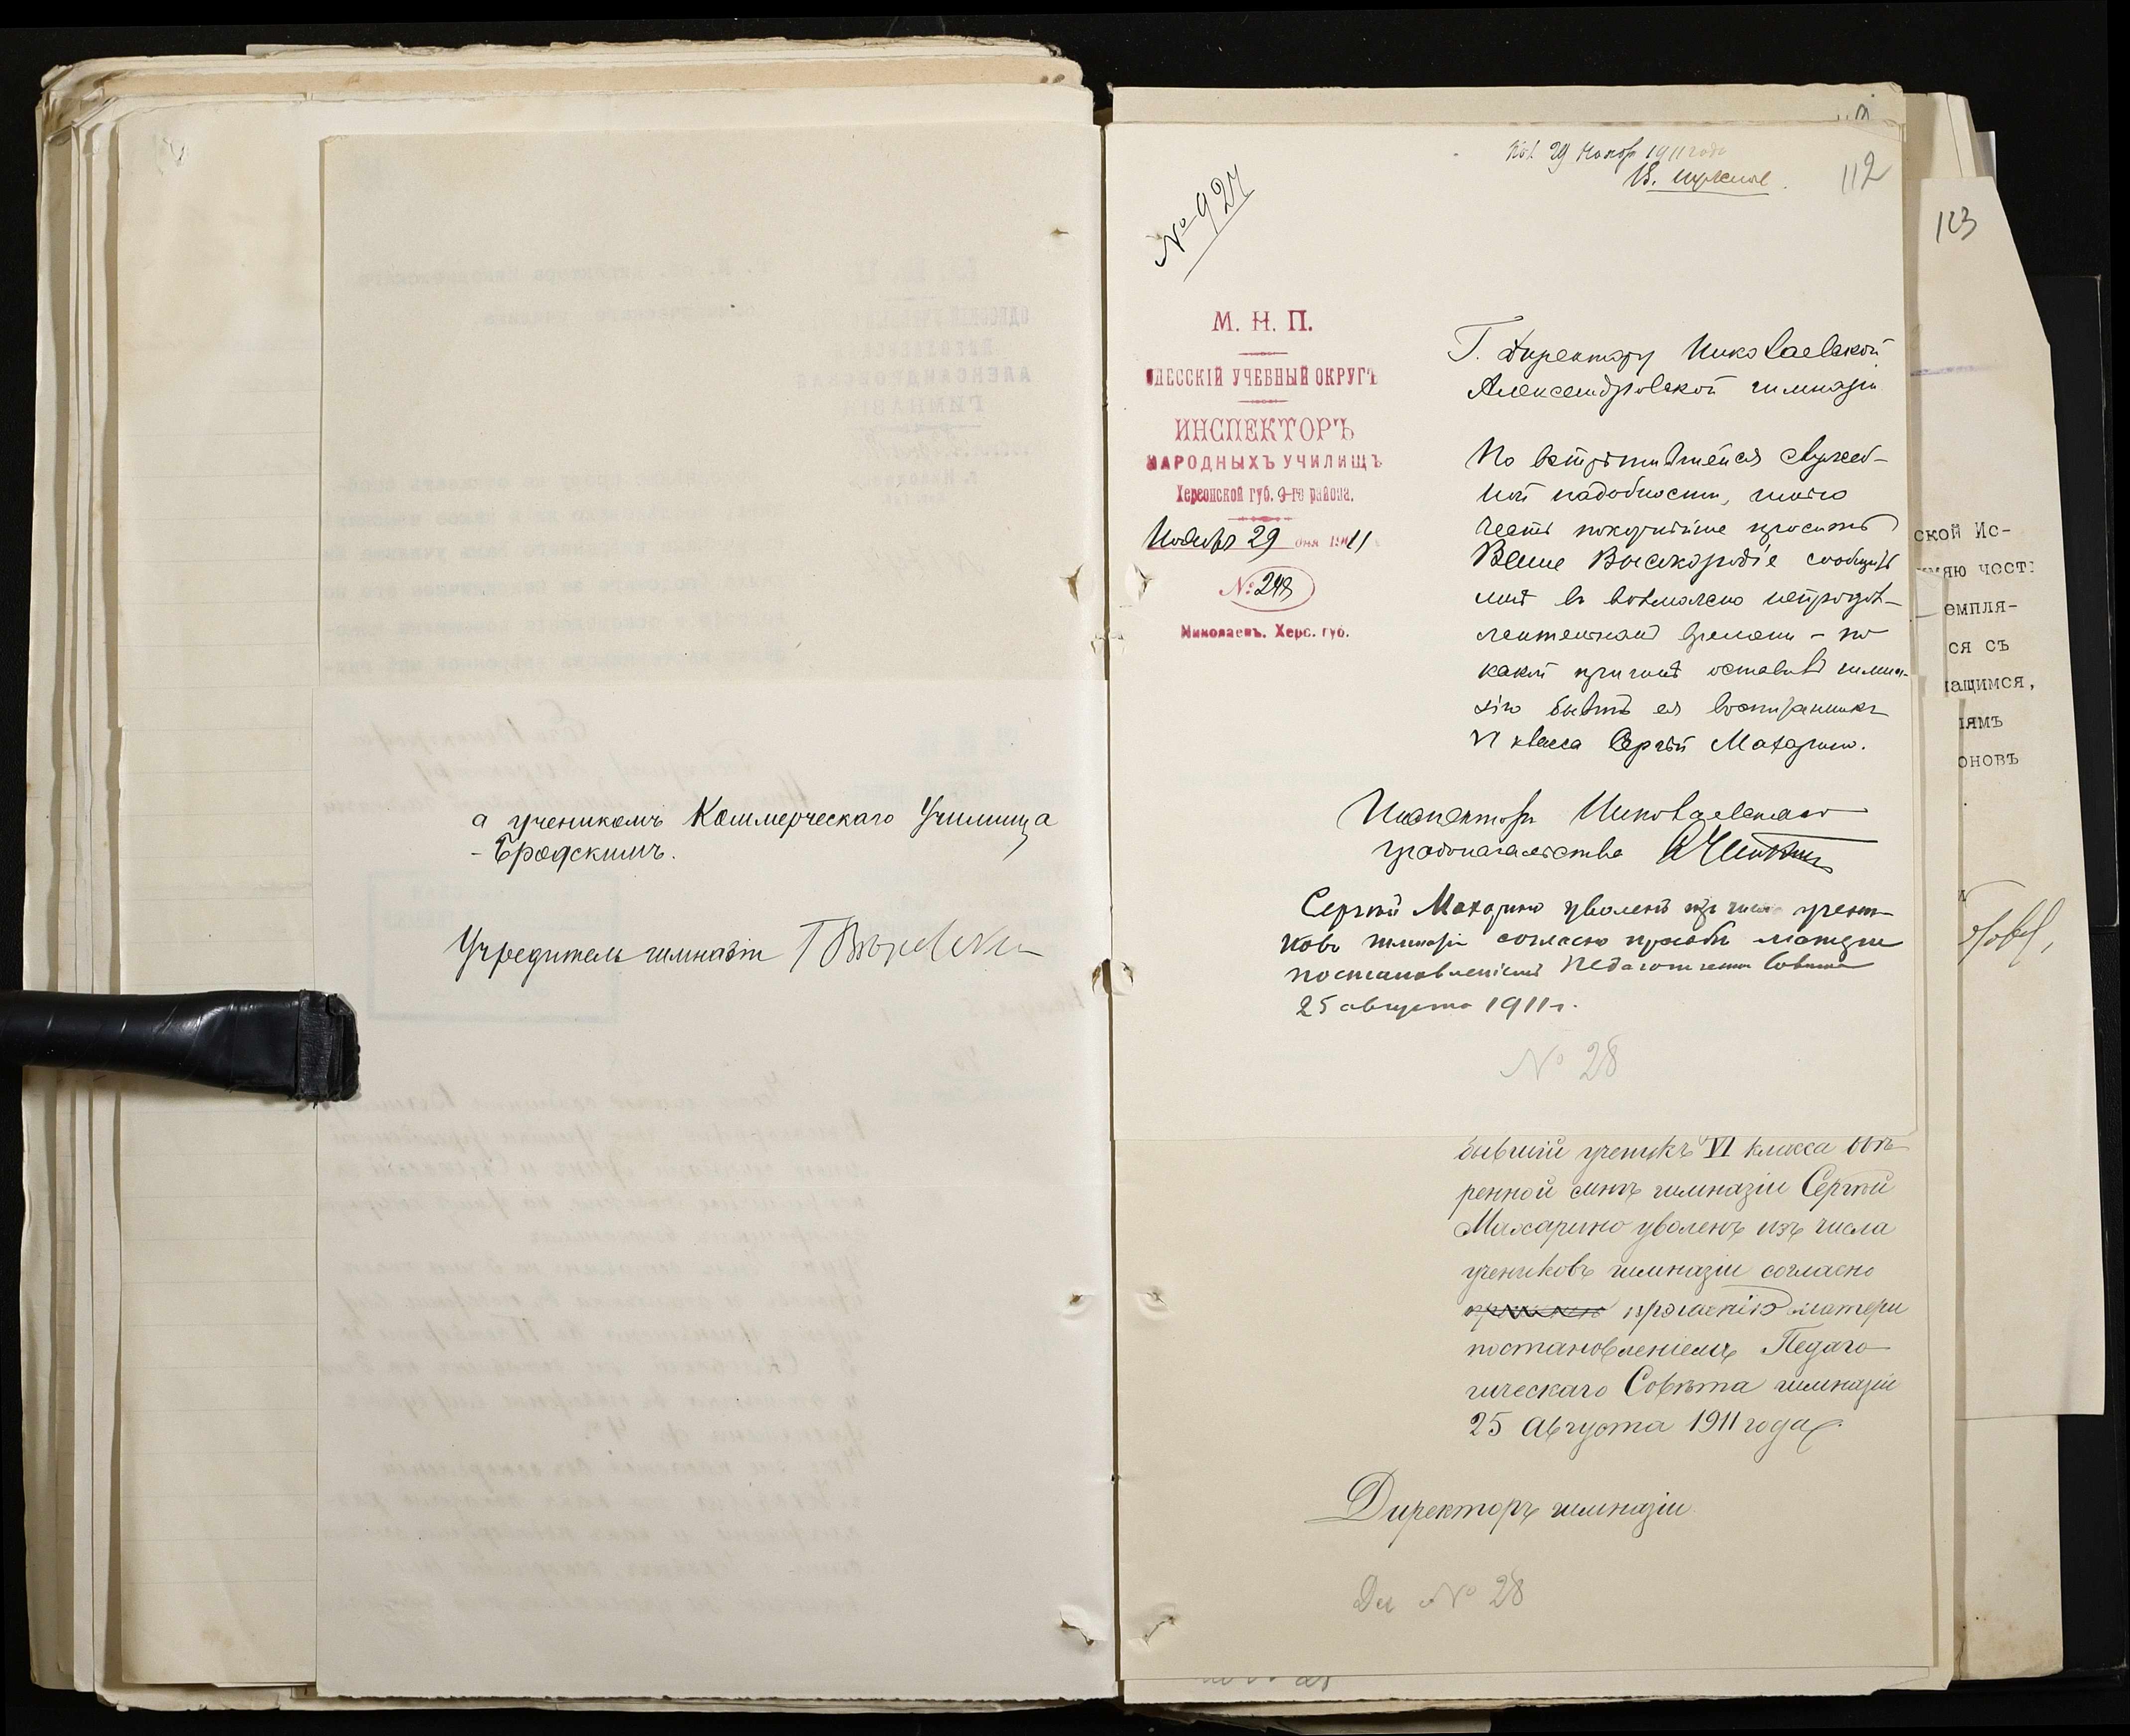 а ученикомъ Коммерческаго Училища
- Бродскимъ.
Учредитель гимназіи
29 Ноябр 1911 года
112
№ 927
М. Н. П.
ОДЕССКІЙ УЧЕБНЫЙ ОКРУГЪ
ИНСПЕКТОРЪ
НАРОДНЫХЪ УЧИЛИЩЪ
Херсонской губ. 9-го района.
Ноября 29 дня 1911
№ 248
Николаевъ. Херс. губ.
Г. Директору Николаевской
Александровской гимназіи
По встрѣтившейся служеб-
ной надобности, имѣю
честь покорнѣйше просить
Ваше Высокородіе сообщить
мнѣ въ возможно непродол-
жительномъ времени - по
какой причинѣ оставилъ гимна-
зію бывшій ея воспитанникъ
VI класса Сергѣй Махарино.
Инспекторъ Николаевскаго
градоначальства
Сергѣй Махарино уволенъ изъ числа учени-
ковъ гимназіи согласно просьбы матери
постановленіемъ Педагогическаго Совѣта
25 августа 1911 г.
№ 28
бывшій ученикъ VI класса ввѣ-
ренной мнѣ гимназіи Сергѣй
Махарино уволенъ изъ числа
учениковъ гимназіи согласно
прошенію матери
постановленіемъ Педаго-
гическаго Совѣта гимназіи
25 Августа 1911 года.
Директоръ гимназіи
Дѣл № 28
113
ской Ис-
мяю чест
емпля-
ся съ
ащимся,
іямъ
оновъ